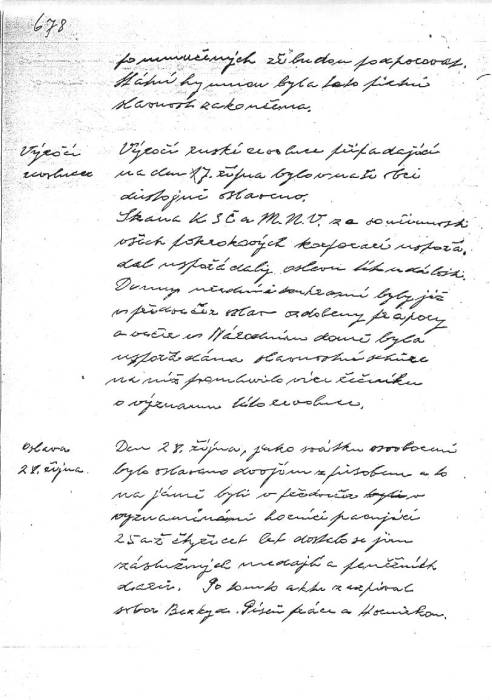 678
pomučených že budou podporovat.
Státní hymnou byla tato pietní
slavnost zakončena.
Výročí
revoluce
Výročí ruské revoluce připadající
na den 17. října bylo v naší obci
důstojně oslaveno.
Strana KSČ a M.N.V. za součinnosti
všech pokrokových korporací uspořá-
dal uspořádaly oslavu této události.
Domy úřední i soukromé byly již
v předvečer oslav ozdobeny prapory
a večer v Národním domě byla
uspořádána slavnostní schůze
na níž promluvilo více řečníků
o významu této revoluce.
Oslava
28. října.
Den 28. října, jako svátku osvobození
bylo oslaveno dvojím způsobem a to
na jámě byli v předvečer byli v
vyznamenáni horníci pracující
25 až čtyřicet let dostalo se jim
záslužných medajlí a peněžních
darů. Po tomto aktu zazpíval
sbor Bezkyd. Píseň práce a Hornickou.